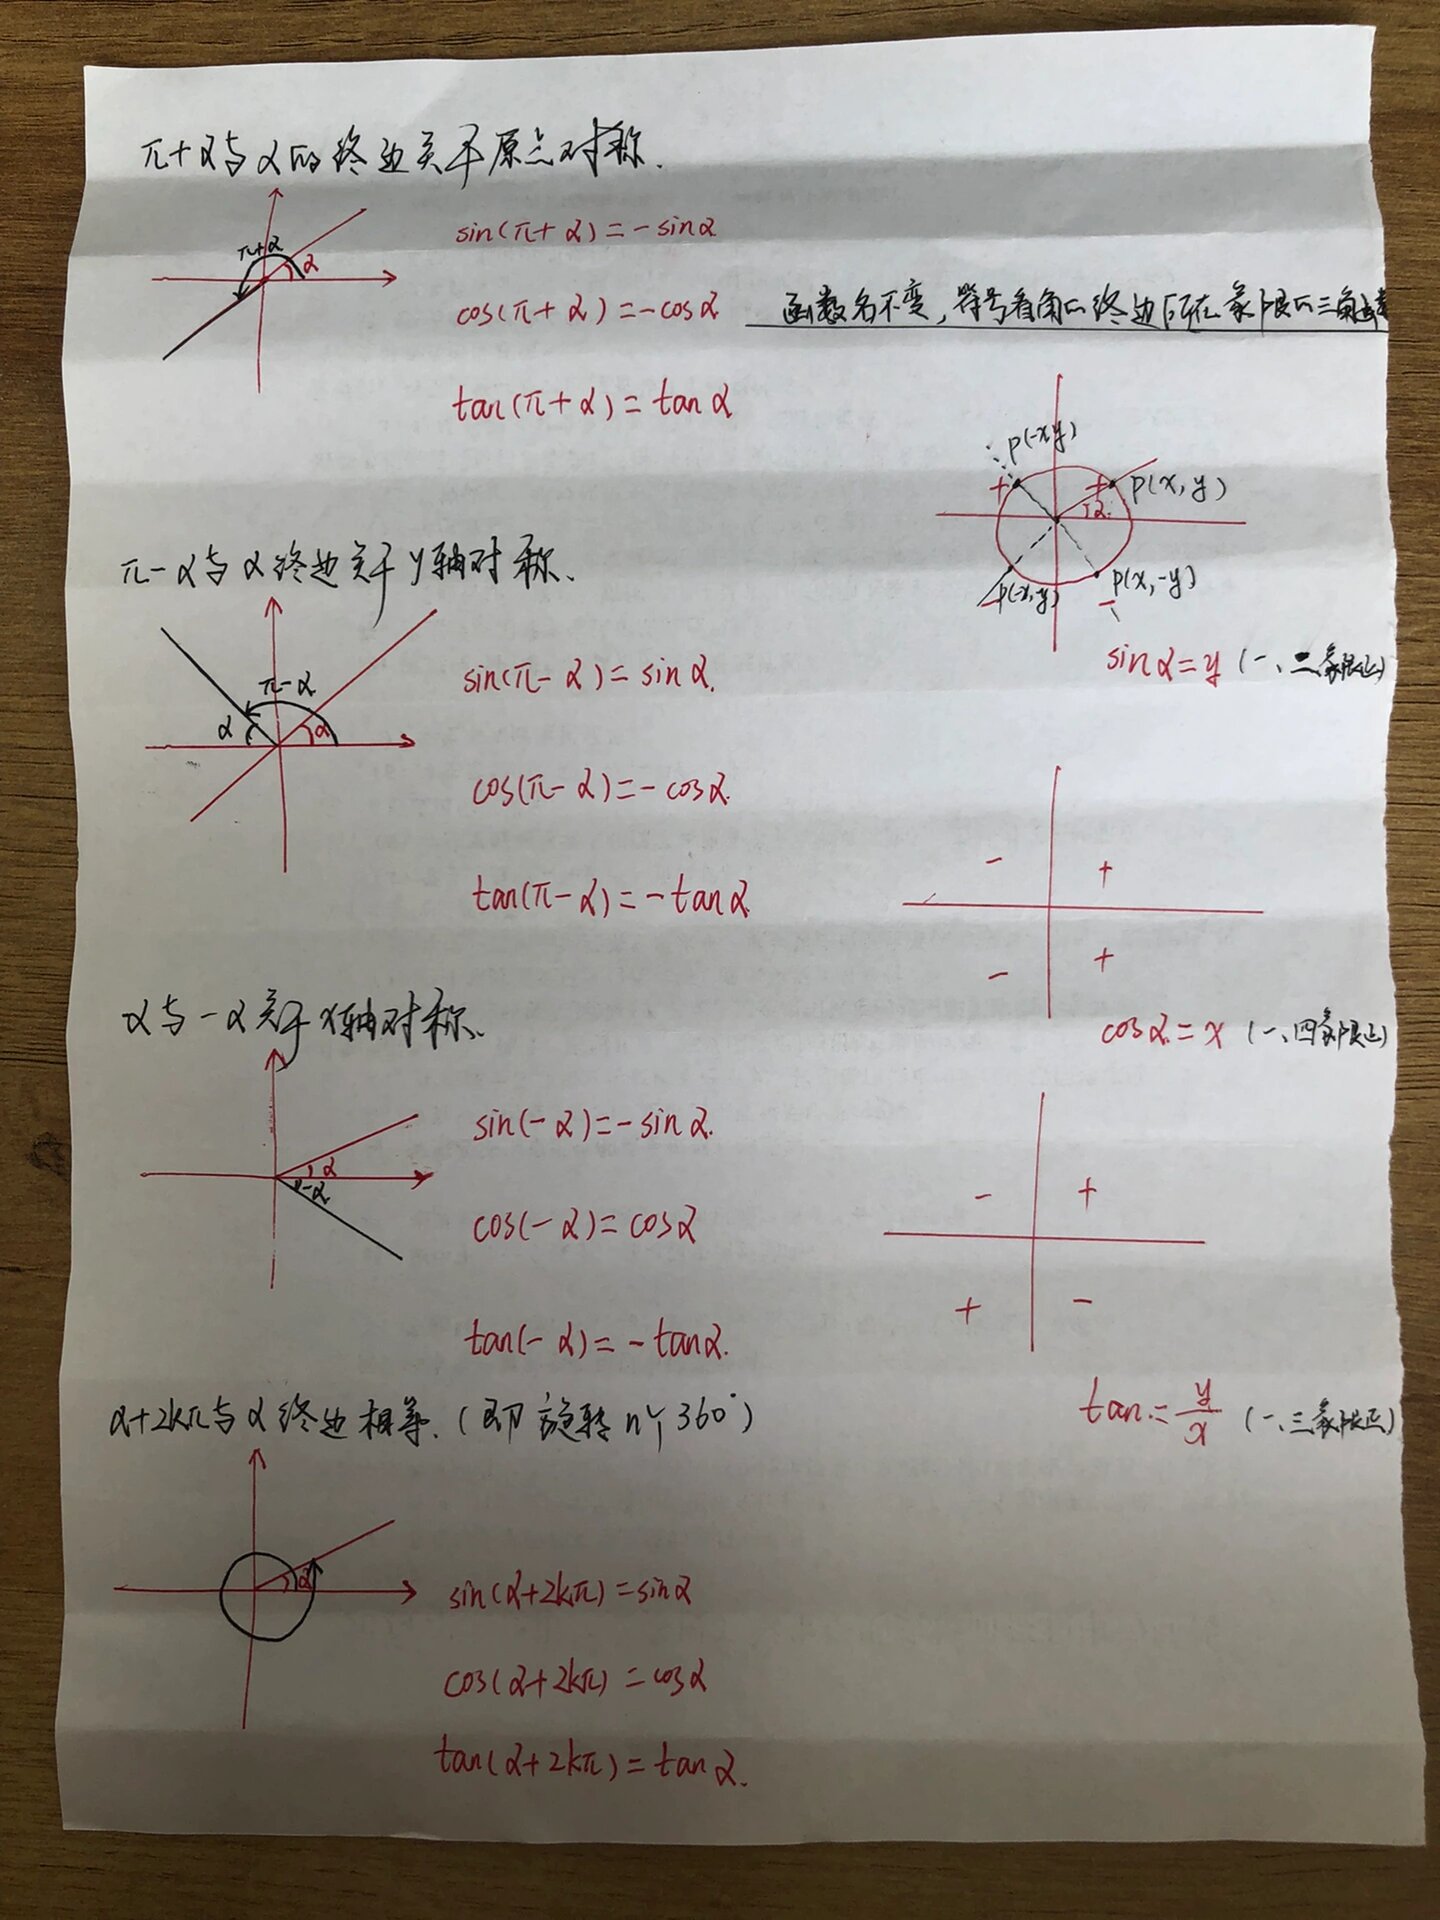 π+α与α的终边关于原点对称.
π+α
α
sin(π+α)=-sinα
cos(π+α)=-cosα
函数名不变,符号看角的终边所在象限的三角函数
tan(π+α)=tanα
p(-x,y)
+
+
p(x,y)
α.
p(-x,-y)
p(x,-y)
-
-
sinα=y(一、二象限正)
π-α与α终边关于y轴对称.
π-α
α
α
sin(π-α)=sinα.
cos(π-α)=-cosα.
tan(π-α)=-tanα
- +
- +
cosα.=x(一、四象限正)
α与-α关于x轴对称.
α
-α
sin(-α)=-sinα.
cos(-α)=cosα
tan(-α)=-tanα.
- +
+ -
tan.=y/x(一、三象限正)
α+2kπ与α终边相等.(即旋转n个360°)
α
sin(α+2kπ)=sinα
cos(α+2kπ)=cosα
tan(α+2kπ)=tanα.